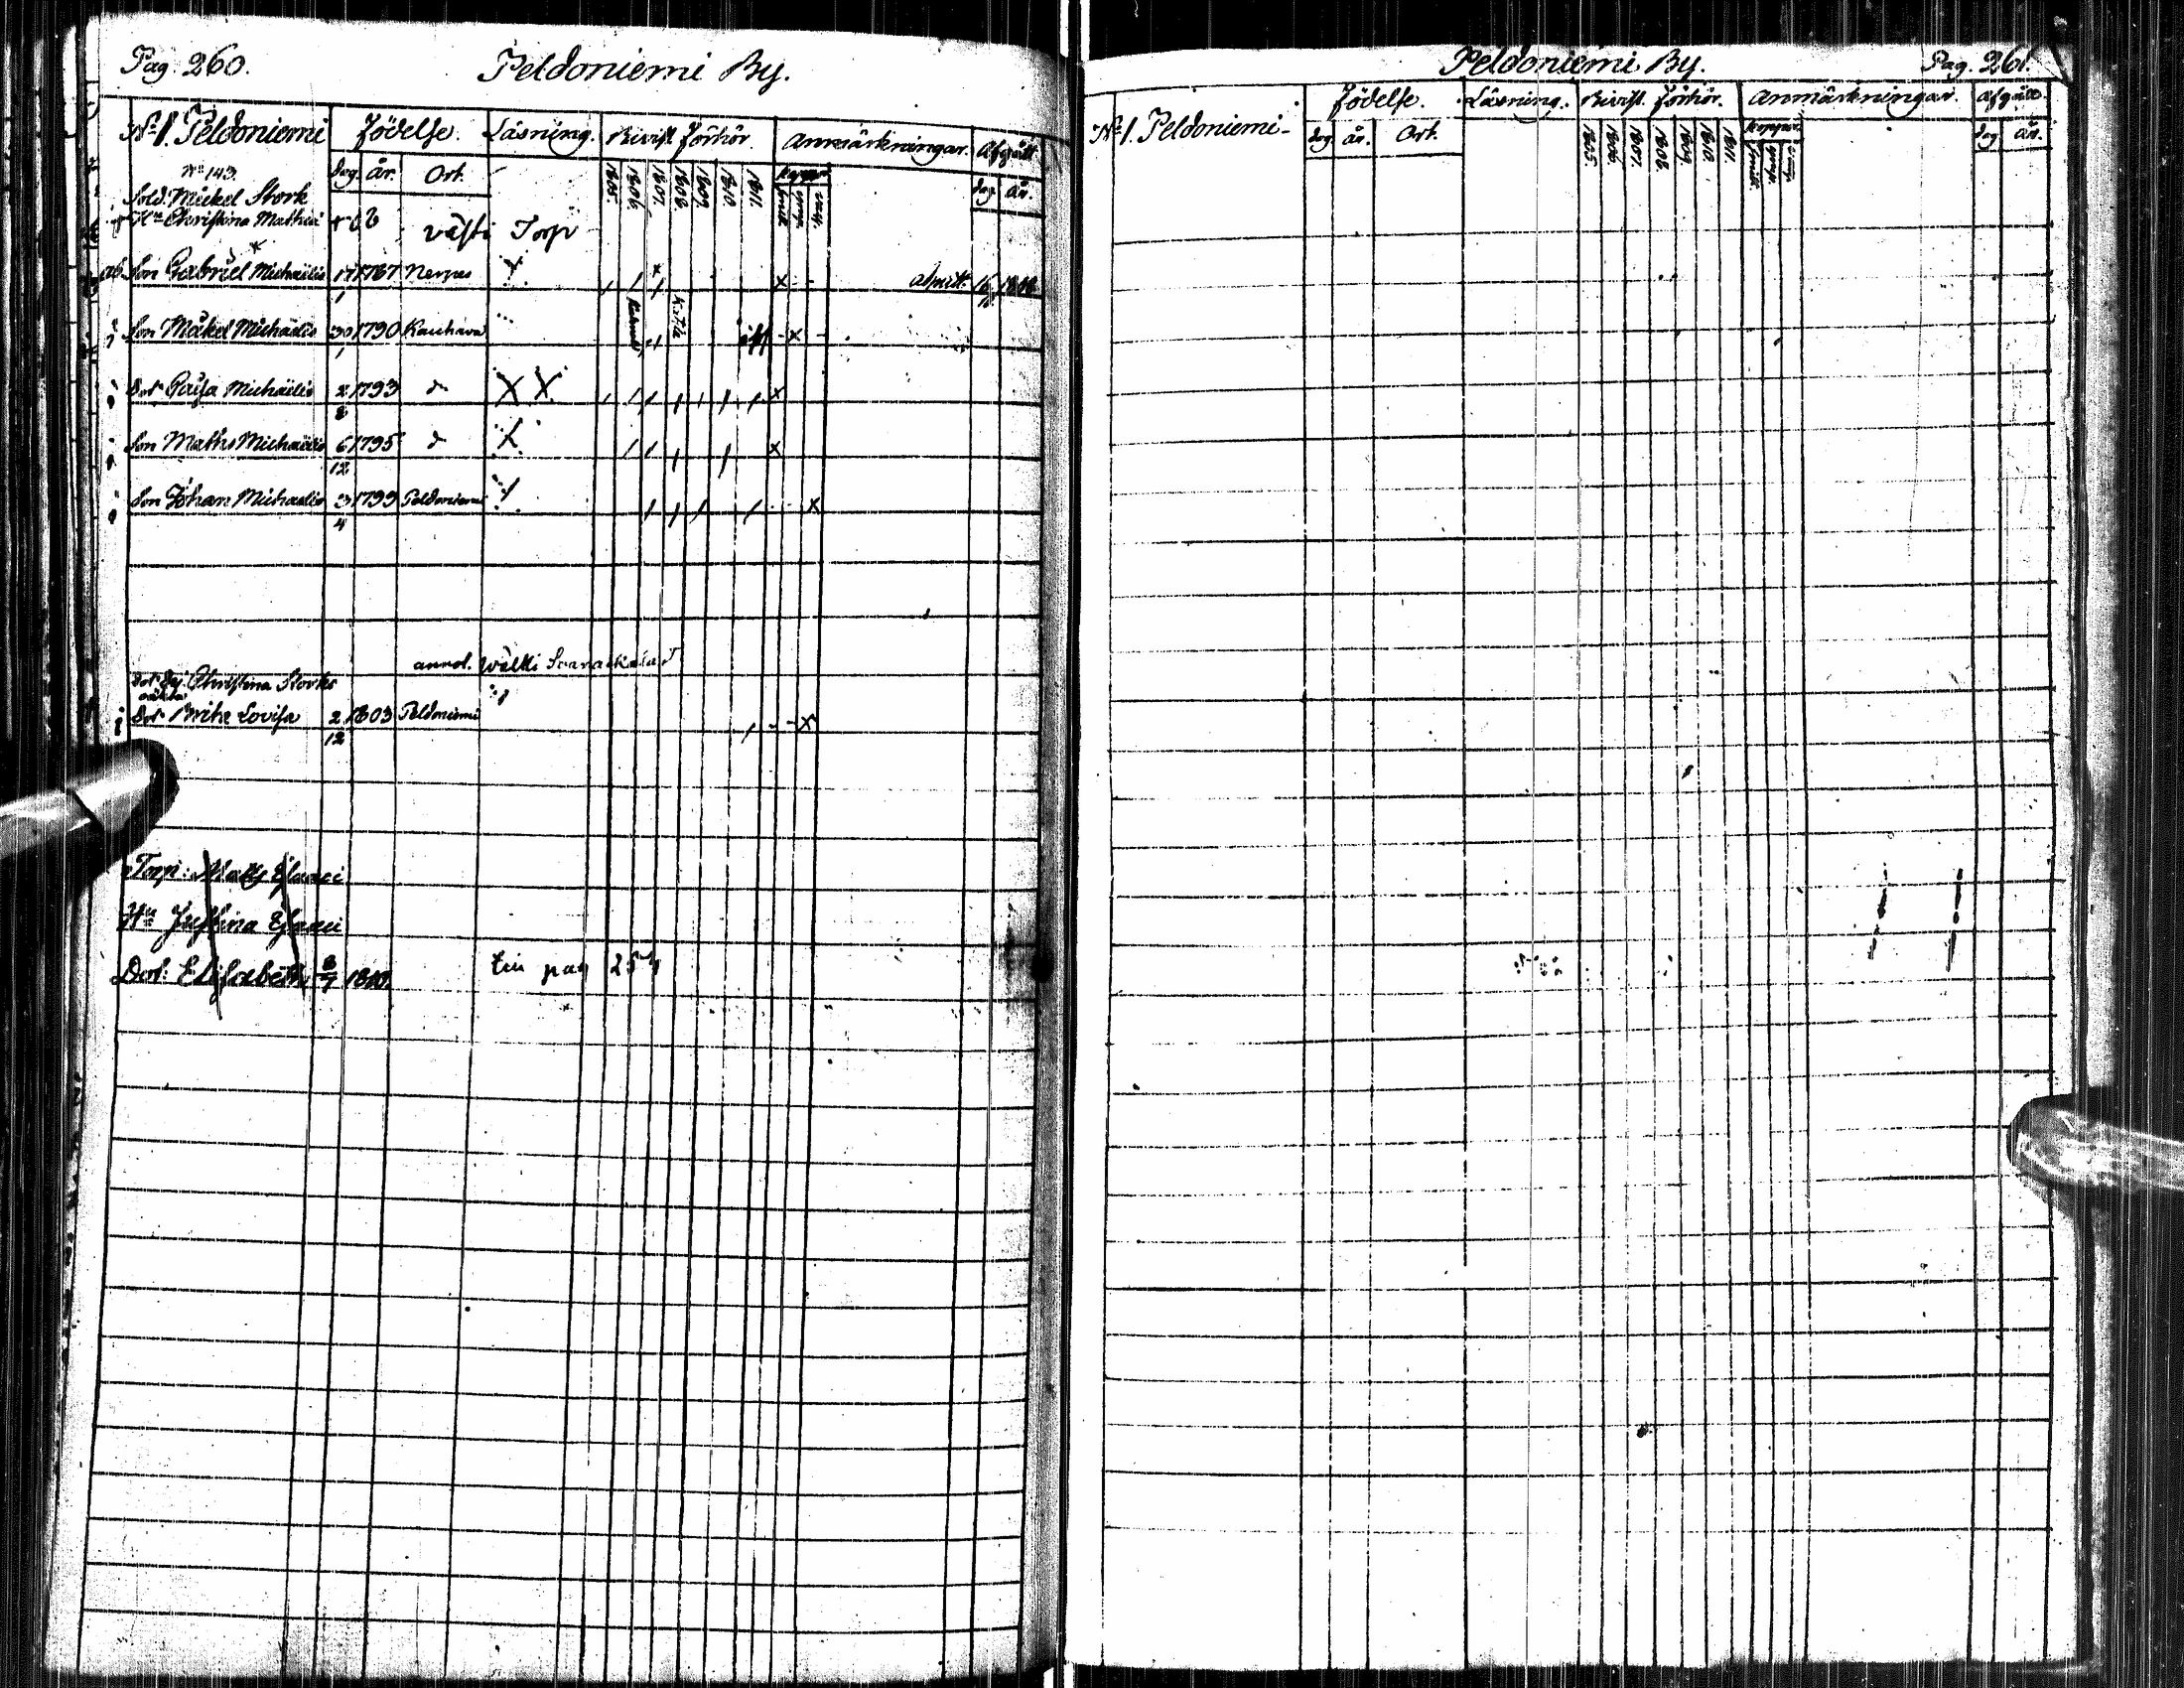 Pag. 260. Peldoniemi By.
No 1. Peldoniemi Födelse. Läsning. Bivist. Förhör. Anmärkningar. Afgått.
Dag. år. Ort. 1805. 1806. 1807. 1808. 1809. 1810. 1811. Koppor. dag. år.
No 143.
Sold. Mickel Stork
Hu Christina Mathiae västi Torp
Son Gabriel Michaëlis 17/1 1787 Nerpes × admitt. 1808
Son Mickel Michaëlis 30/1 1790 Kauhava ×
Dot. Caisa Michaëlis 2/8 1793 d X X ×
Son Maths Michaëlis 6/12 1795 d X ×
Son Johan Michaëlis 3/4 1799 Peldoniemi ×
annot.
Christina Storks
Dot. Brita Lovisa 2/12 1803 Peldoniemi ×
Torp: Matts Esaaci
Hu Justina Esaaci
Dot: Elisabeth 8/7 1810. pag 254
Peldoniemi By. Pag. 261.
No 1. Peldoniemi- Födelse. Läsning. Bivist. Förhör. Anmärkningar. Afgått.
dag. år. Ort. 1805. 1806. 1807. 1808. 1809. 1810. 1811. Koppor. dag år.